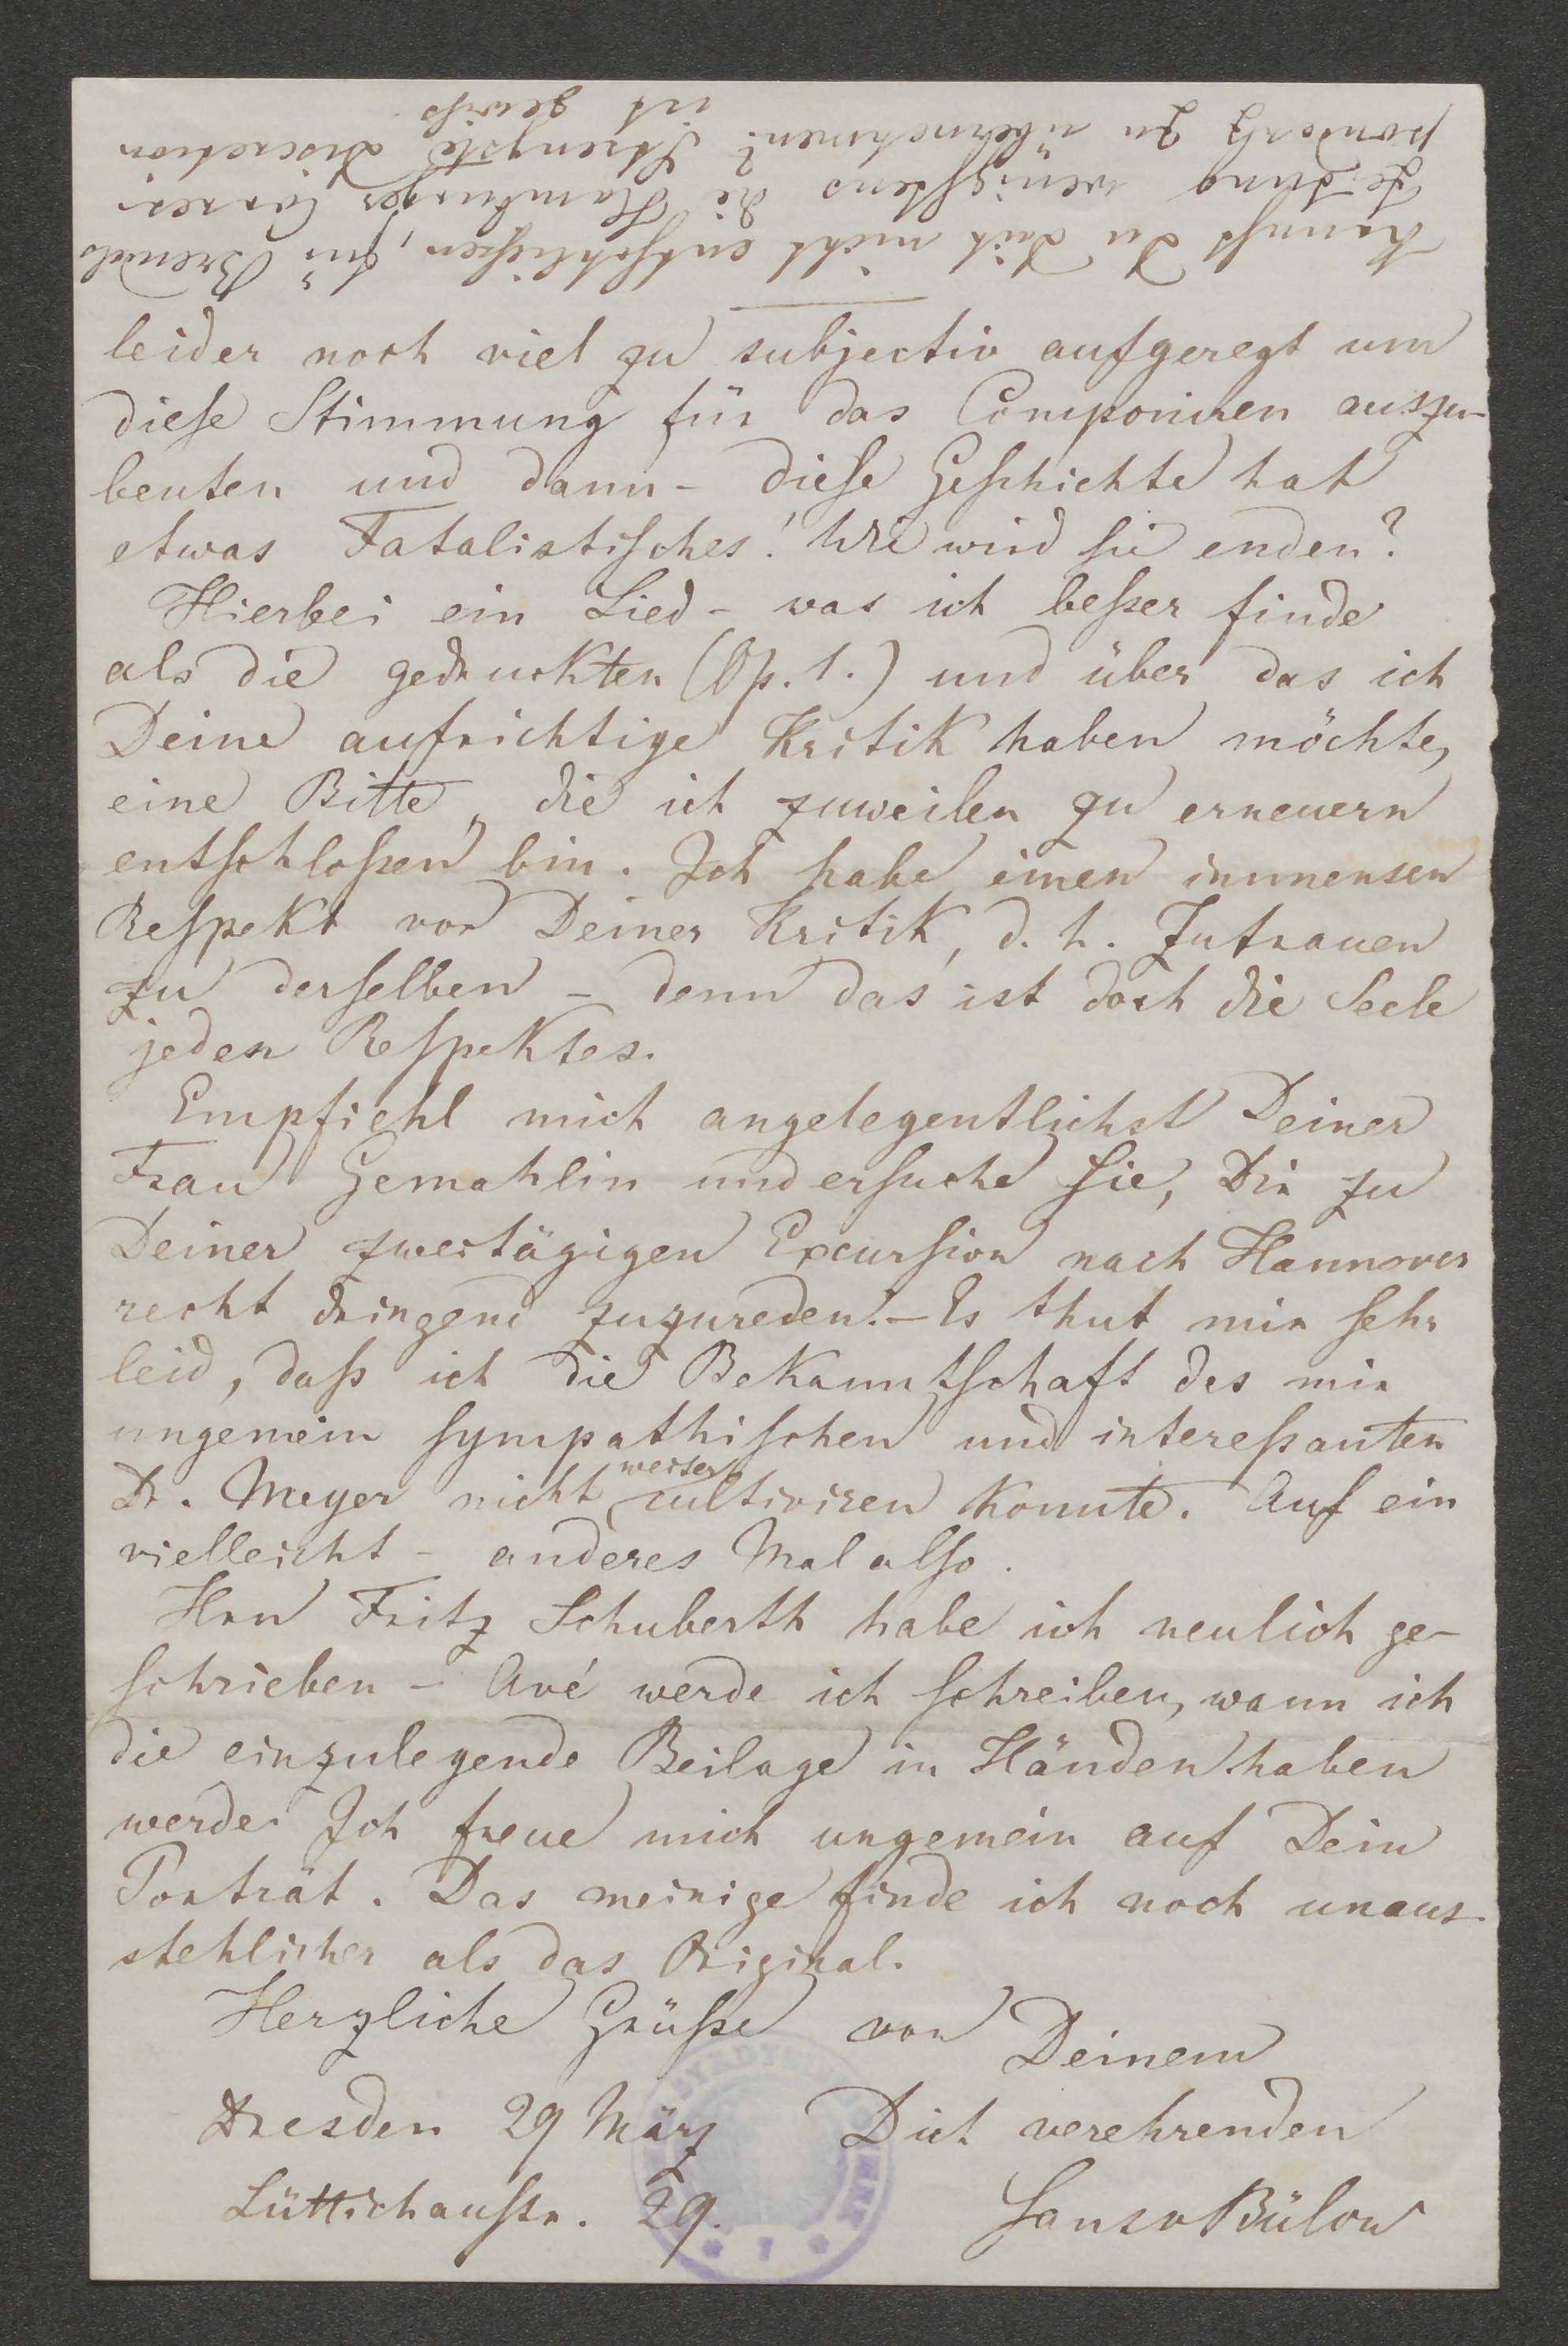 Kannst du dich nicht entschließen, für Brendels
Zeitung wenigstens die Hamburger Corres-
pondenz zu übernehmen? Strengste Discretion
ist gewiß
leider noch viel zu subjectiv aufgeregt um
diese Stimmung für das Componiren auszu-
beuten und dann – diese Geschichte hat
etwas Fatalistisches! Wie wird sie enden?
Hierbei ein Lied – was ich beßer finde
als die gedruckten (Op. 1.) und über das ich
Deine aufrichtige Kritik haben möchte,
eine Bitte, die ich zuweilen zu erneuern
entschloßen bin. Ich habe einen immensen
Respekt vor Deiner Kritik, d. h. Zutrauen
zu derselben – denn das ist doch die Seele
jeden Respektes.
Empfiehl mich angelegentlichst Deiner
Frau Gemahlin und ersuche sie, Dir zu
Deiner zweitägigen Excursion nach Hannover
recht dringend zuzureden. – Es thut mir sehr
leid, daß ich die Bekanntschaft des mir
ungemein sympathischen und intereßanten
Dr. Meyer nicht weiter cultiviren konnte. Auf ein
vielleicht – anderes Mal also.
Hrn Fritz Schuberth habe ich neulich ge-
schrieben – Avé werde ich schreiben, wann ich
die einzulegende Beilage in Händen haben
werde. Ich freue mich ungemein auf Dein
Porträt. Das meinige finde ich noch unaus-
stehlicher als das Original.
Herzliche Grüße von Deinem
Dresden 29 März Dich verehrenden
Lüttichaustr. 29. Hans v Bülow